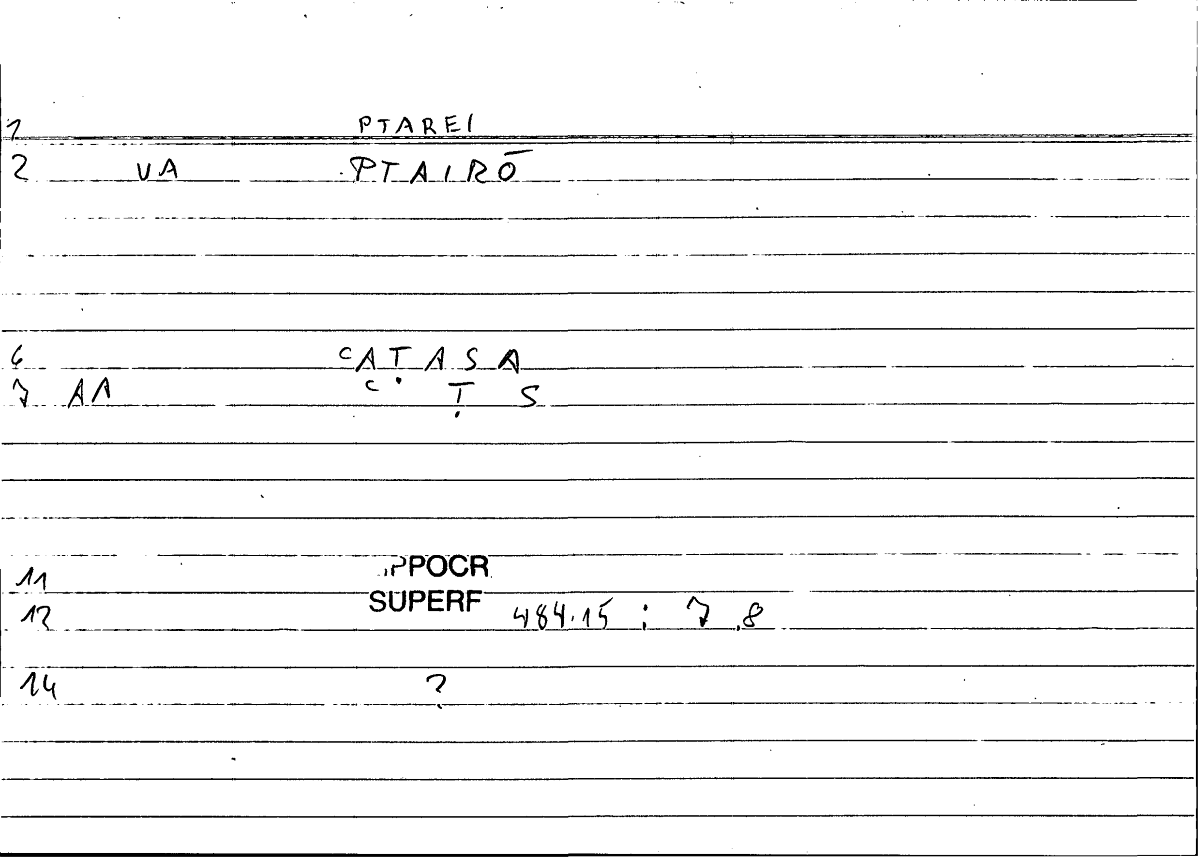 1 PTAREI
2 VA PTAIRŌ
6 CATASA
7 AA C Ṭ S
11 PPOCR
12 SUPERF 484.15 : 7.8
14 ?